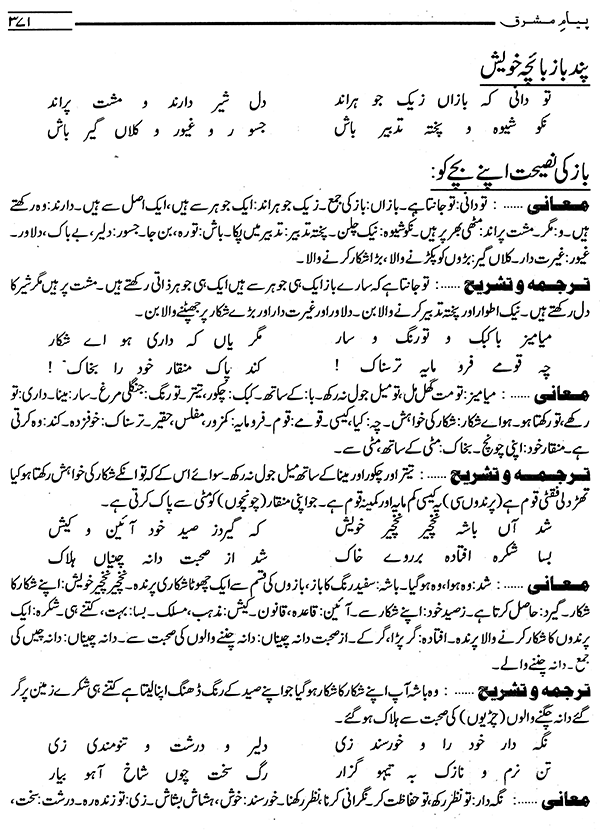 پیامِ مشرق ۳۷۱
پند باز با بچّہ خویش
تو دانی کہ بازاں زیک جو ہراند دل شیر دارند و مشت پراند
نکو شیوہ و پختہ تدبیر باش جسور و غیور و کلاں گیر باش
باز کی نصیحت اپنے بچے کو:
معانی ...... : تو دانی: تو جانتا ہے۔ بازاں: باز کی جمع۔ زیک جو ہراند: ایک جو ہر سے ہیں، ایک اصل سے ہیں۔ دارند: وہ رکھتے
ہیں۔ و: مگر۔ مشت پراند: مٹھی بھر پر ہیں۔ نکو شیوہ: نیک چلن۔ پختہ تدبیر: تدبیر میں پکا۔ باش: تو رہ، بن جا۔ جسور: دلیر، بے باک، دلاور۔
غیور: غیرت دار۔ کلاں گیر: بڑوں کو پکڑنے والا، بڑا شکار کرنے والا۔
ترجمہ و تشریح ...... : تو جانتا ہے کہ سارے باز ایک ہی جو ہر سے ہیں ایک ہی جو ہر ذاتی رکھتے ہیں۔ مشت پر ہیں مگر شیر کا
دل رکھتے ہیں۔ نیک اطوار اور پختہ تدبیر کرنے والا بن۔ دلاور اور غیرت دار اور بڑے شکار پر جھپٹنے والا بن۔
میامیز با کبک و تورنگ و سار مگر یاں کہ داری ہو اے شکار
چہ قومے فرو مایہ ترسناک ! کند پاک منقار خود را بخاک !
معانی ...... : میامیز: تو مت گھل مل، تو میل جول نہ رکھ۔ با: کے ساتھ۔ کبک: چکور، تیتر۔ تورنگ: جنگلی مرغ۔ سار: مینا۔ داری: تو
رکھے، تو رکھتا ہو۔ ہواے شکار: شکار کی خواہش۔ چہ: کیا، کیسی۔ قومے: قوم۔ فرومایہ: کمزور، مفلس، حقیر۔ ترسناک: خوفزدہ۔ کند: وہ کرتی
ہے۔ منقار خود: اپنی چونچ۔ بخاک: مٹی کے ساتھ، مٹی سے۔
ترجمہ و تشریح ...... : تیتر اور چکور اور مینا کے ساتھ میل جول نہ رکھ۔ سوائے اس کے کہ تو انکے شکار کی خواہش رکھتا ہو کیا
تھڑدلی قوم ہے (پرندوں سی) یہ کیسی کم مایہ اور کمینہ قوم ہے۔ جو اپنی منقار (چونچوں) کو مٹی سے پاک کرتی ہے۔
شد آں باشہ نخچیر نخچیر خویش کہ گیرد ز صید خود آئین و کیش
بسا شکرہ افتادہ برروے خاک شد از صحبت دانہ چیناں ہلاک
معانی ...... : شد: وہ ہوا، وہ ہو گیا۔ باشہ: سفید رنگ کا باز، بازوں کی قسم سے ایک چھوٹا شکاری پرندہ۔ نخچیر نخچیر خویش: اپنے شکار کا
شکار۔ گیرد: حاصل کرتا ہے۔ زصید خود: اپنے شکار سے۔ آئین: قاعدہ، قانون۔ کیش: مذہب، مسلک۔ بسا: بہت، کتنے ہی۔ شکرہ: ایک
پرندوں کا شکار کرنے والا پرندہ۔ افتادہ: گر پڑا، گر کے۔ از صحبت دانہ چیناں: دانہ چننے والوں کی صحبت سے۔ دانہ چیناں: دانہ چیں کی
جمع۔ دانہ چننے والے۔
ترجمہ و تشریح ...... : وہ باشہ آپ اپنے شکار کا شکار ہو گیا جو اپنے صید کے رنگ ڈھنگ اپنا لیتا ہے کتنے ہی شکرے زمین پر گر
گئے دانہ چگنے والوں (چڑیوں) کی صحبت سے ہلاک ہو گئے۔
نگہ دار خود را و خورسند زی دلیر و درشت و تنومندی زی
تن نرم و نازک بہ تیہو گزار رگ سخت چوں شاخ آہو بیار
معانی ...... : نگہ دار: تو نظر رکھ، تو حفاظت کر۔ نگرانی کرنا، نظر رکھنا۔ خورسند: خوش، ہشاش بشاش۔ زی: تو زندہ رہ۔ درشت: سخت،